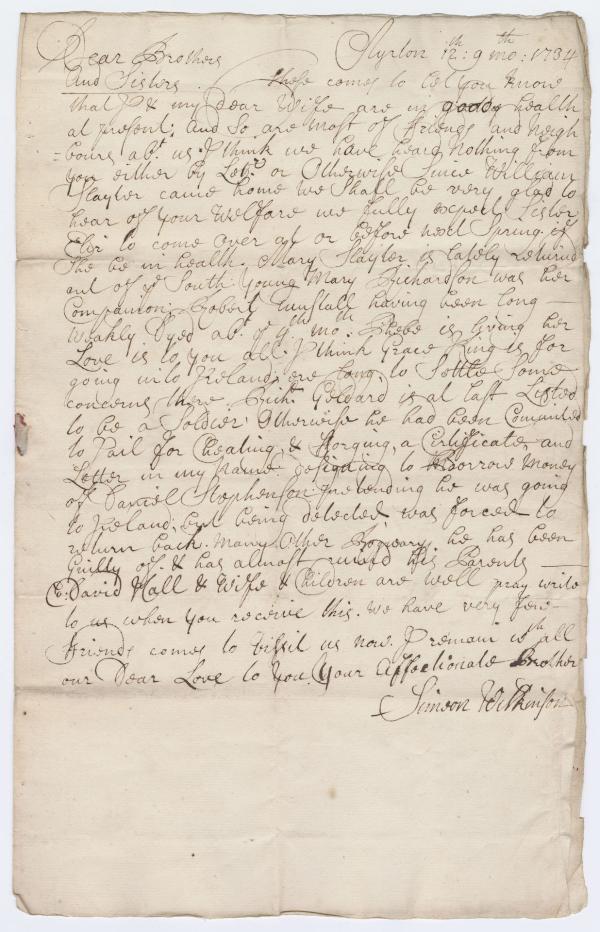 Dear Brothers Ayrton 12th: 9th mo: 1734
And Sisters. These comes to let you know
that I & my Dear Wife are in good health
at present; And So are most of Friends and Neigh
-bours abt. us I think we have heard Nothing from
you either by Letr. or Otherwise Since William
Slayter came home we Shall be very glad to
hear of your Welfare we fully expect Sister
Eliz to come over at or before next Spring if
She be in health. Mary Slayter is lately returnd
out of ye South Young Mary Richardson was her
Companion; Robert Tunstall having been long —
weakly Dyed abt. ye 9th mo. Phebe is living her
Love is to you all. I think Grace King is for
going into Ireland ere long to Settle Some
concerns there. Richd Geldard is at last Listed
to be a Soldier Otherwise he had been Comitted
to Jail for Cheating & Forging, a Certificate and
Letter in my Name designing to borrow Money
of Daniel Stephenson pretending he was going
to Ireland, but being detected was forced to
return back. Many Other Rogueary he has been
Guilty of. & has almost ruined his Parents —
David Hall & Wife & Children are well pray write
to us when you receive this. We have very few
Friends comes to Vissit us now. I remain wth all
our Dear Love to You. Your Affectionate Brother
Simeon Wilkinson